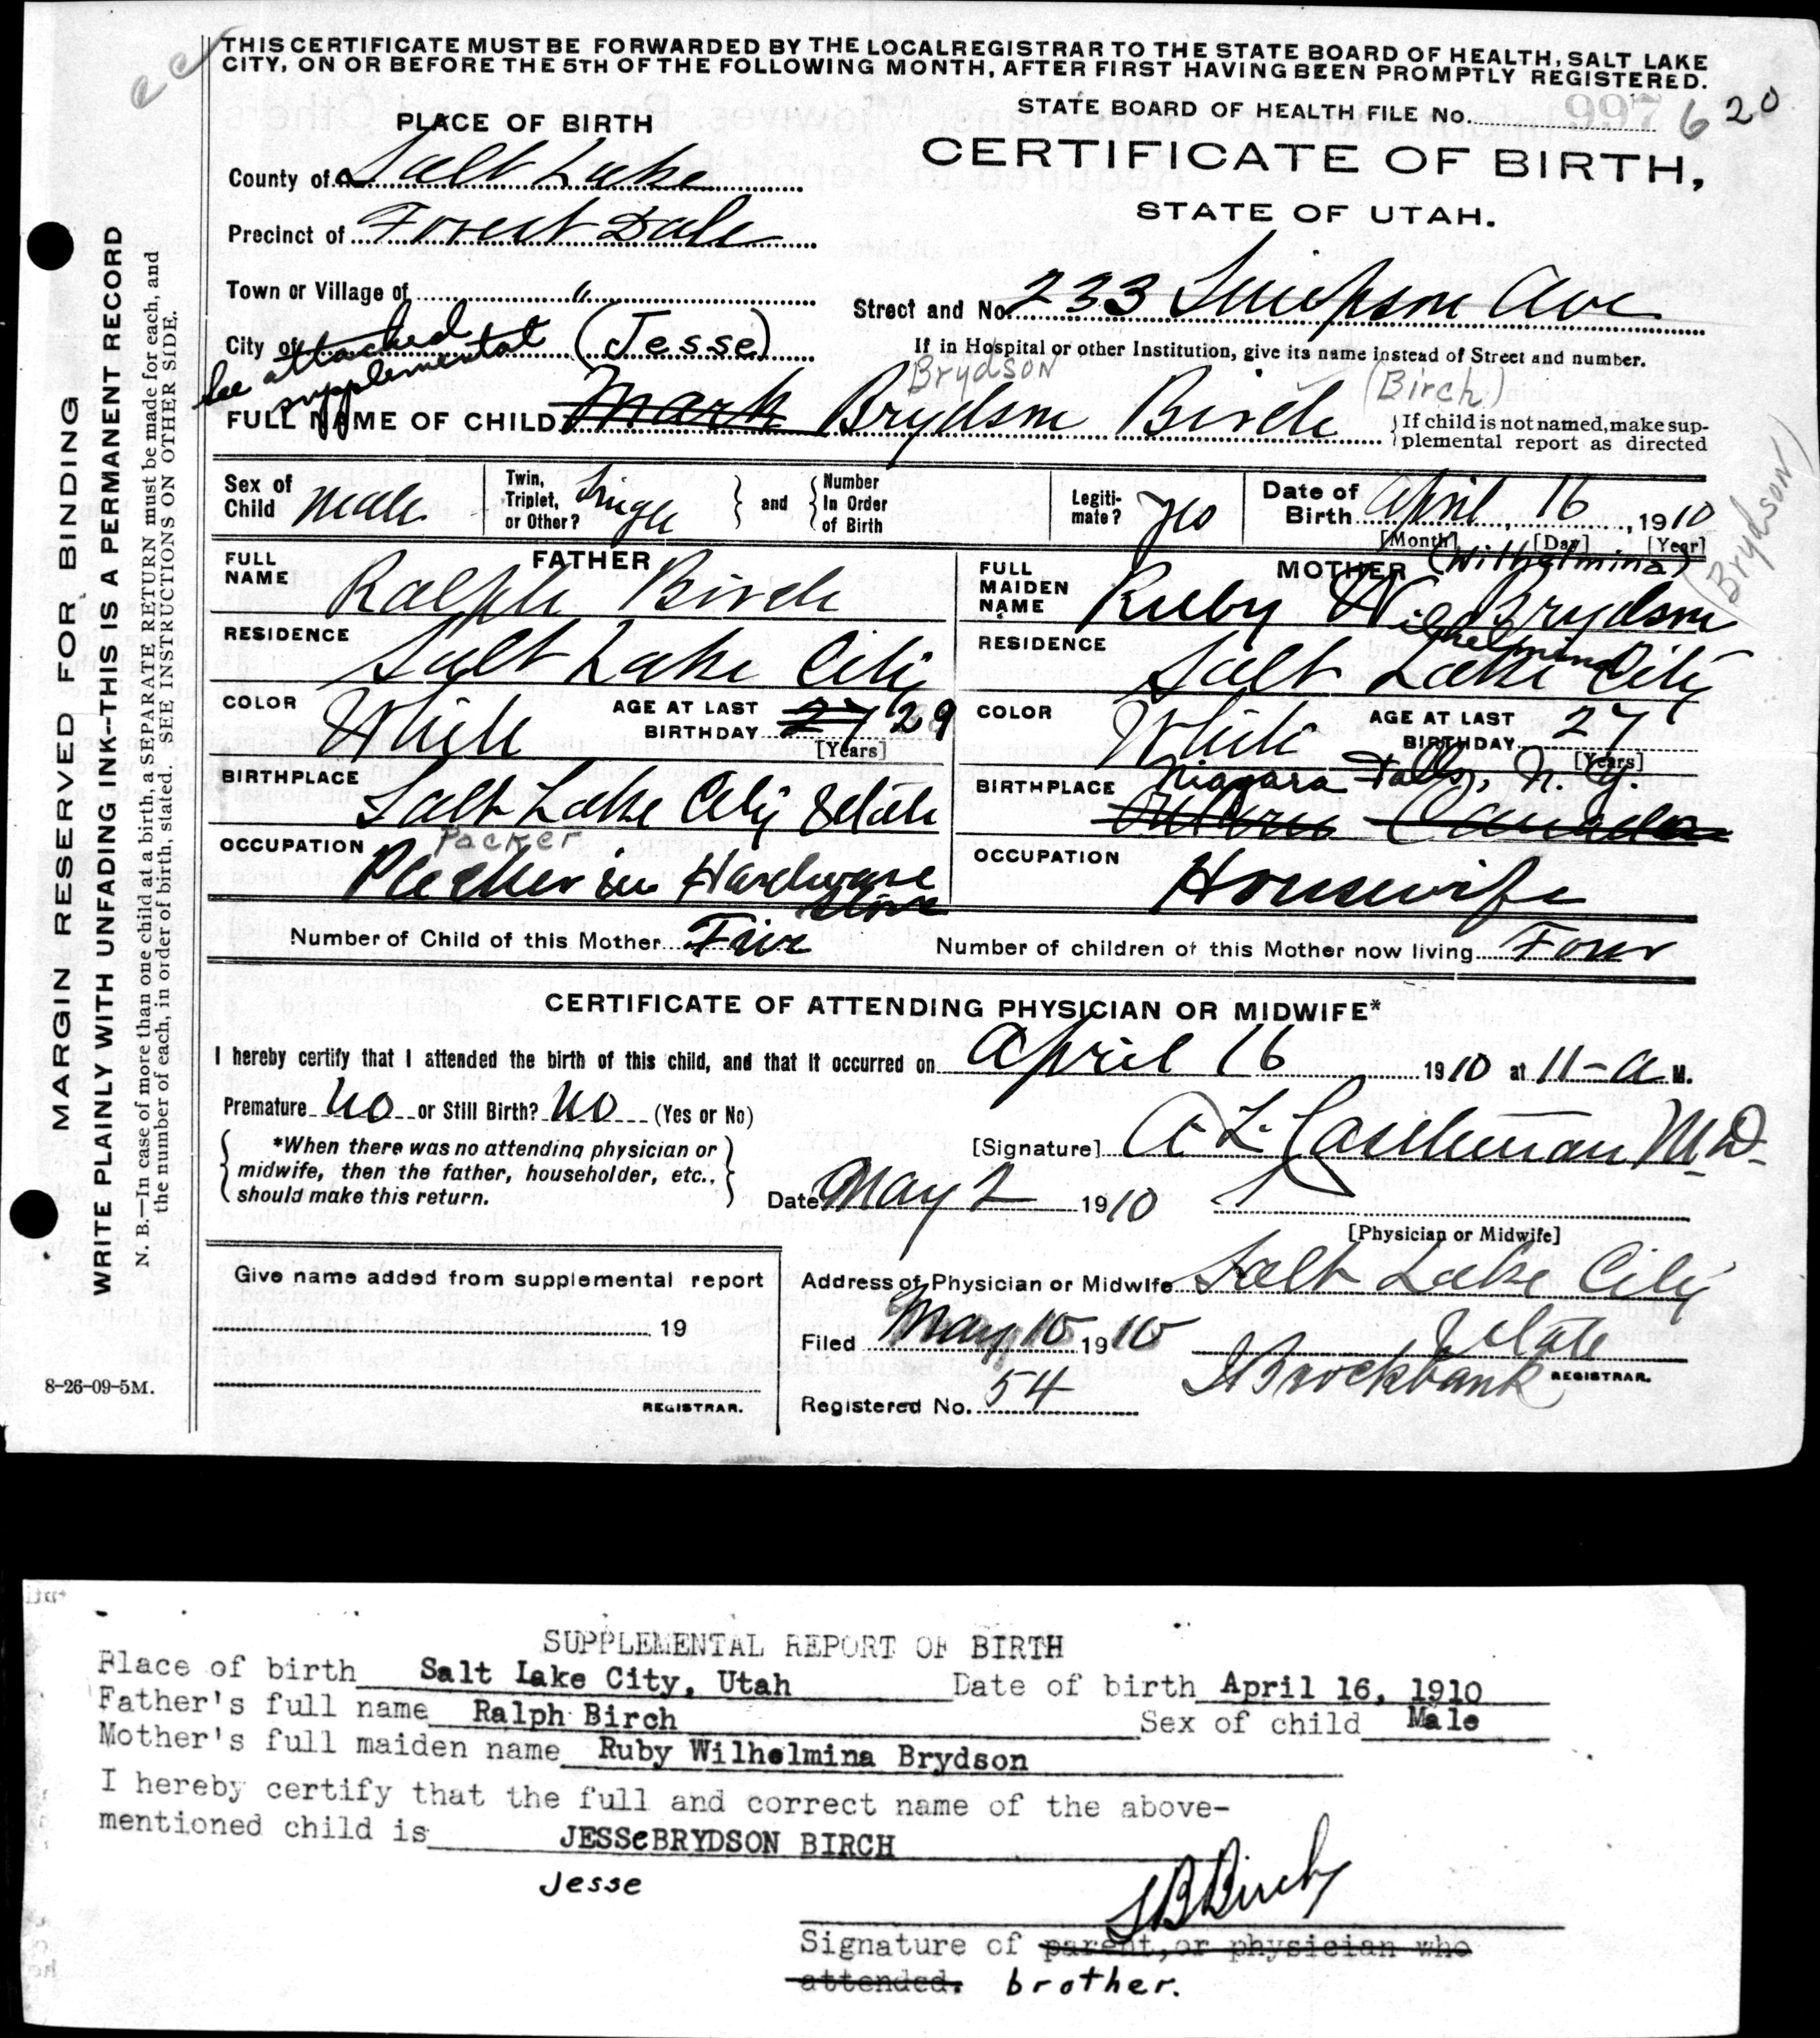 THIS CERTIFICATE MUST BE FORWARDED BY THE LOCAL REGISTRAR TO THE STATE BOARD OF HEALTH, SALT LAKE
CITY, ON OR BEFORE THE 5TH OF THE FOLLOWING MONTH, AFTER FIRST HAVING BEEN PROMPTLY REGISTERED.
STATE BOARD OF HEALTH FILE No. 997 620
PLACE OF BIRTH
CERTIFICATE OF BIRTH,
STATE OF UTAH.
County of Salt Lake
Precinct of Forest Dale
Town or Village of "
Street and No. 233 Simpson Ave
City of (Jesse)
If in Hospital or other Institution, give its name instead of Street and number.
See attached
supplemental
Brydson (Birch)
FULL NAME OF CHILD Mark Brydson Birch
{If child is not named, make sup-
plemental report as directed
Sex of Child Male
Twin, Triplet, or Other? Single
and
Number In Order of Birth
Legiti-mate? Yes
Date of Birth April 16, 1910
[Month] [Day] [Year]
(Brydson)
FATHER
FULL NAME Ralph Birch
RESIDENCE Salt Lake City
COLOR White
AGE AT LAST BIRTHDAY 27 29
[Years]
BIRTHPLACE Salt Lake City Utah
Packer
OCCUPATION Packer in Hardware
Store
MOTHER (Wilhelmina)
FULL MAIDEN NAME Ruby Wilhelmina Brydson
RESIDENCE Salt Lake City
COLOR White
AGE AT LAST BIRTHDAY 27
[Years]
BIRTHPLACE Niagara Falls, N. Y.
Canada
OCCUPATION Housewife
Number of Child of this Mother Five
Number of children of this Mother now living Four
CERTIFICATE OF ATTENDING PHYSICIAN OR MIDWIFE*
I hereby certify that I attended the birth of this child, and that it occurred on April 16 1910 at 11-A. M.
Premature No or Still Birth? No (Yes or No)
*When there was no attending physician or
midwife, then the father, householder, etc.,
should make this return.
[Signature] A. L. Castleman M.D.
Date May 2 1910
[Physician or Midwife]
Give name added from supplemental report
19
REGISTRAR.
Address of Physician or Midwife Salt Lake City
Utah
Filed May 10 1910
Brockbank REGISTRAR.
Registered No. 54
8-26-09-5M.
MARGIN RESERVED FOR BINDING
WRITE PLAINLY WITH UNFADING INK--THIS IS A PERMANENT RECORD
N. B.—In case of more than one child at a birth, a SEPARATE RETURN must be made for each, and
the number of each, in order of birth, stated. SEE INSTRUCTIONS ON OTHER SIDE.
SUPPLEMENTAL REPORT OF BIRTH
Place of birth Salt Lake City, Utah Date of birth April 16, 1910
Father's full name Ralph Birch Sex of child Male
Mother's full maiden name Ruby Wilhelmina Brydson
I hereby certify that the full and correct name of the above-
mentioned child is JESSeBRYDSON BIRCH
Jesse
B Birch
Signature of parent, or physician who
attended. brother.